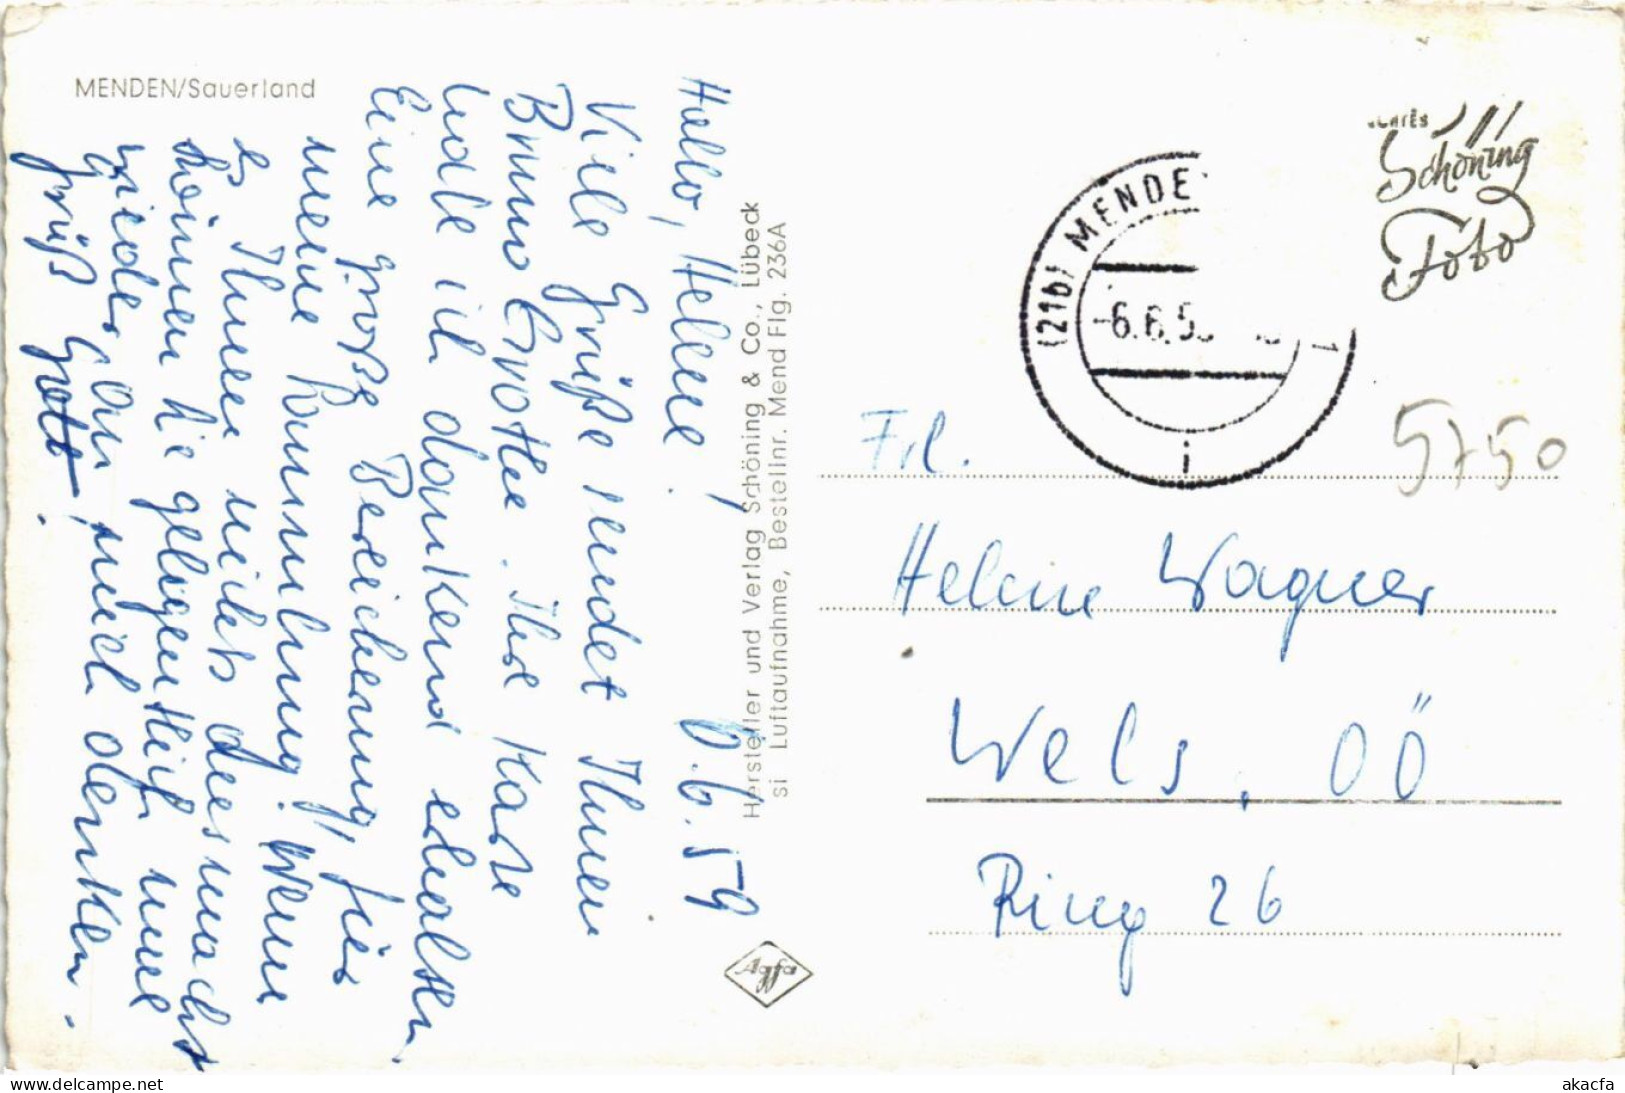 MENDEN/Sauerland
Hallo, Helene! 6.6.59
Viele Grüße sendet Ihnen
Bruno Grothe. Ihre Karte
habe ich dankend erhalten.
Eine große Bereicherung für
meine Sammlung. Wenn
es Ihnen nichts ausmacht
können Sie gelegentlich mal
wieder an mich denken.
Gruß
Hersteller und Verlag Schöning & Co., Lübeck
si Luftaufnahme, Bestellnr. Mend Flg. 236A
Agfa
(21b) MENDE
-6.6.5
1
i
Schöning
Foto
5750
Frl.
Helene Wagner
Wels, OÖ
Ring 26
www.delcampe.net
akacfa